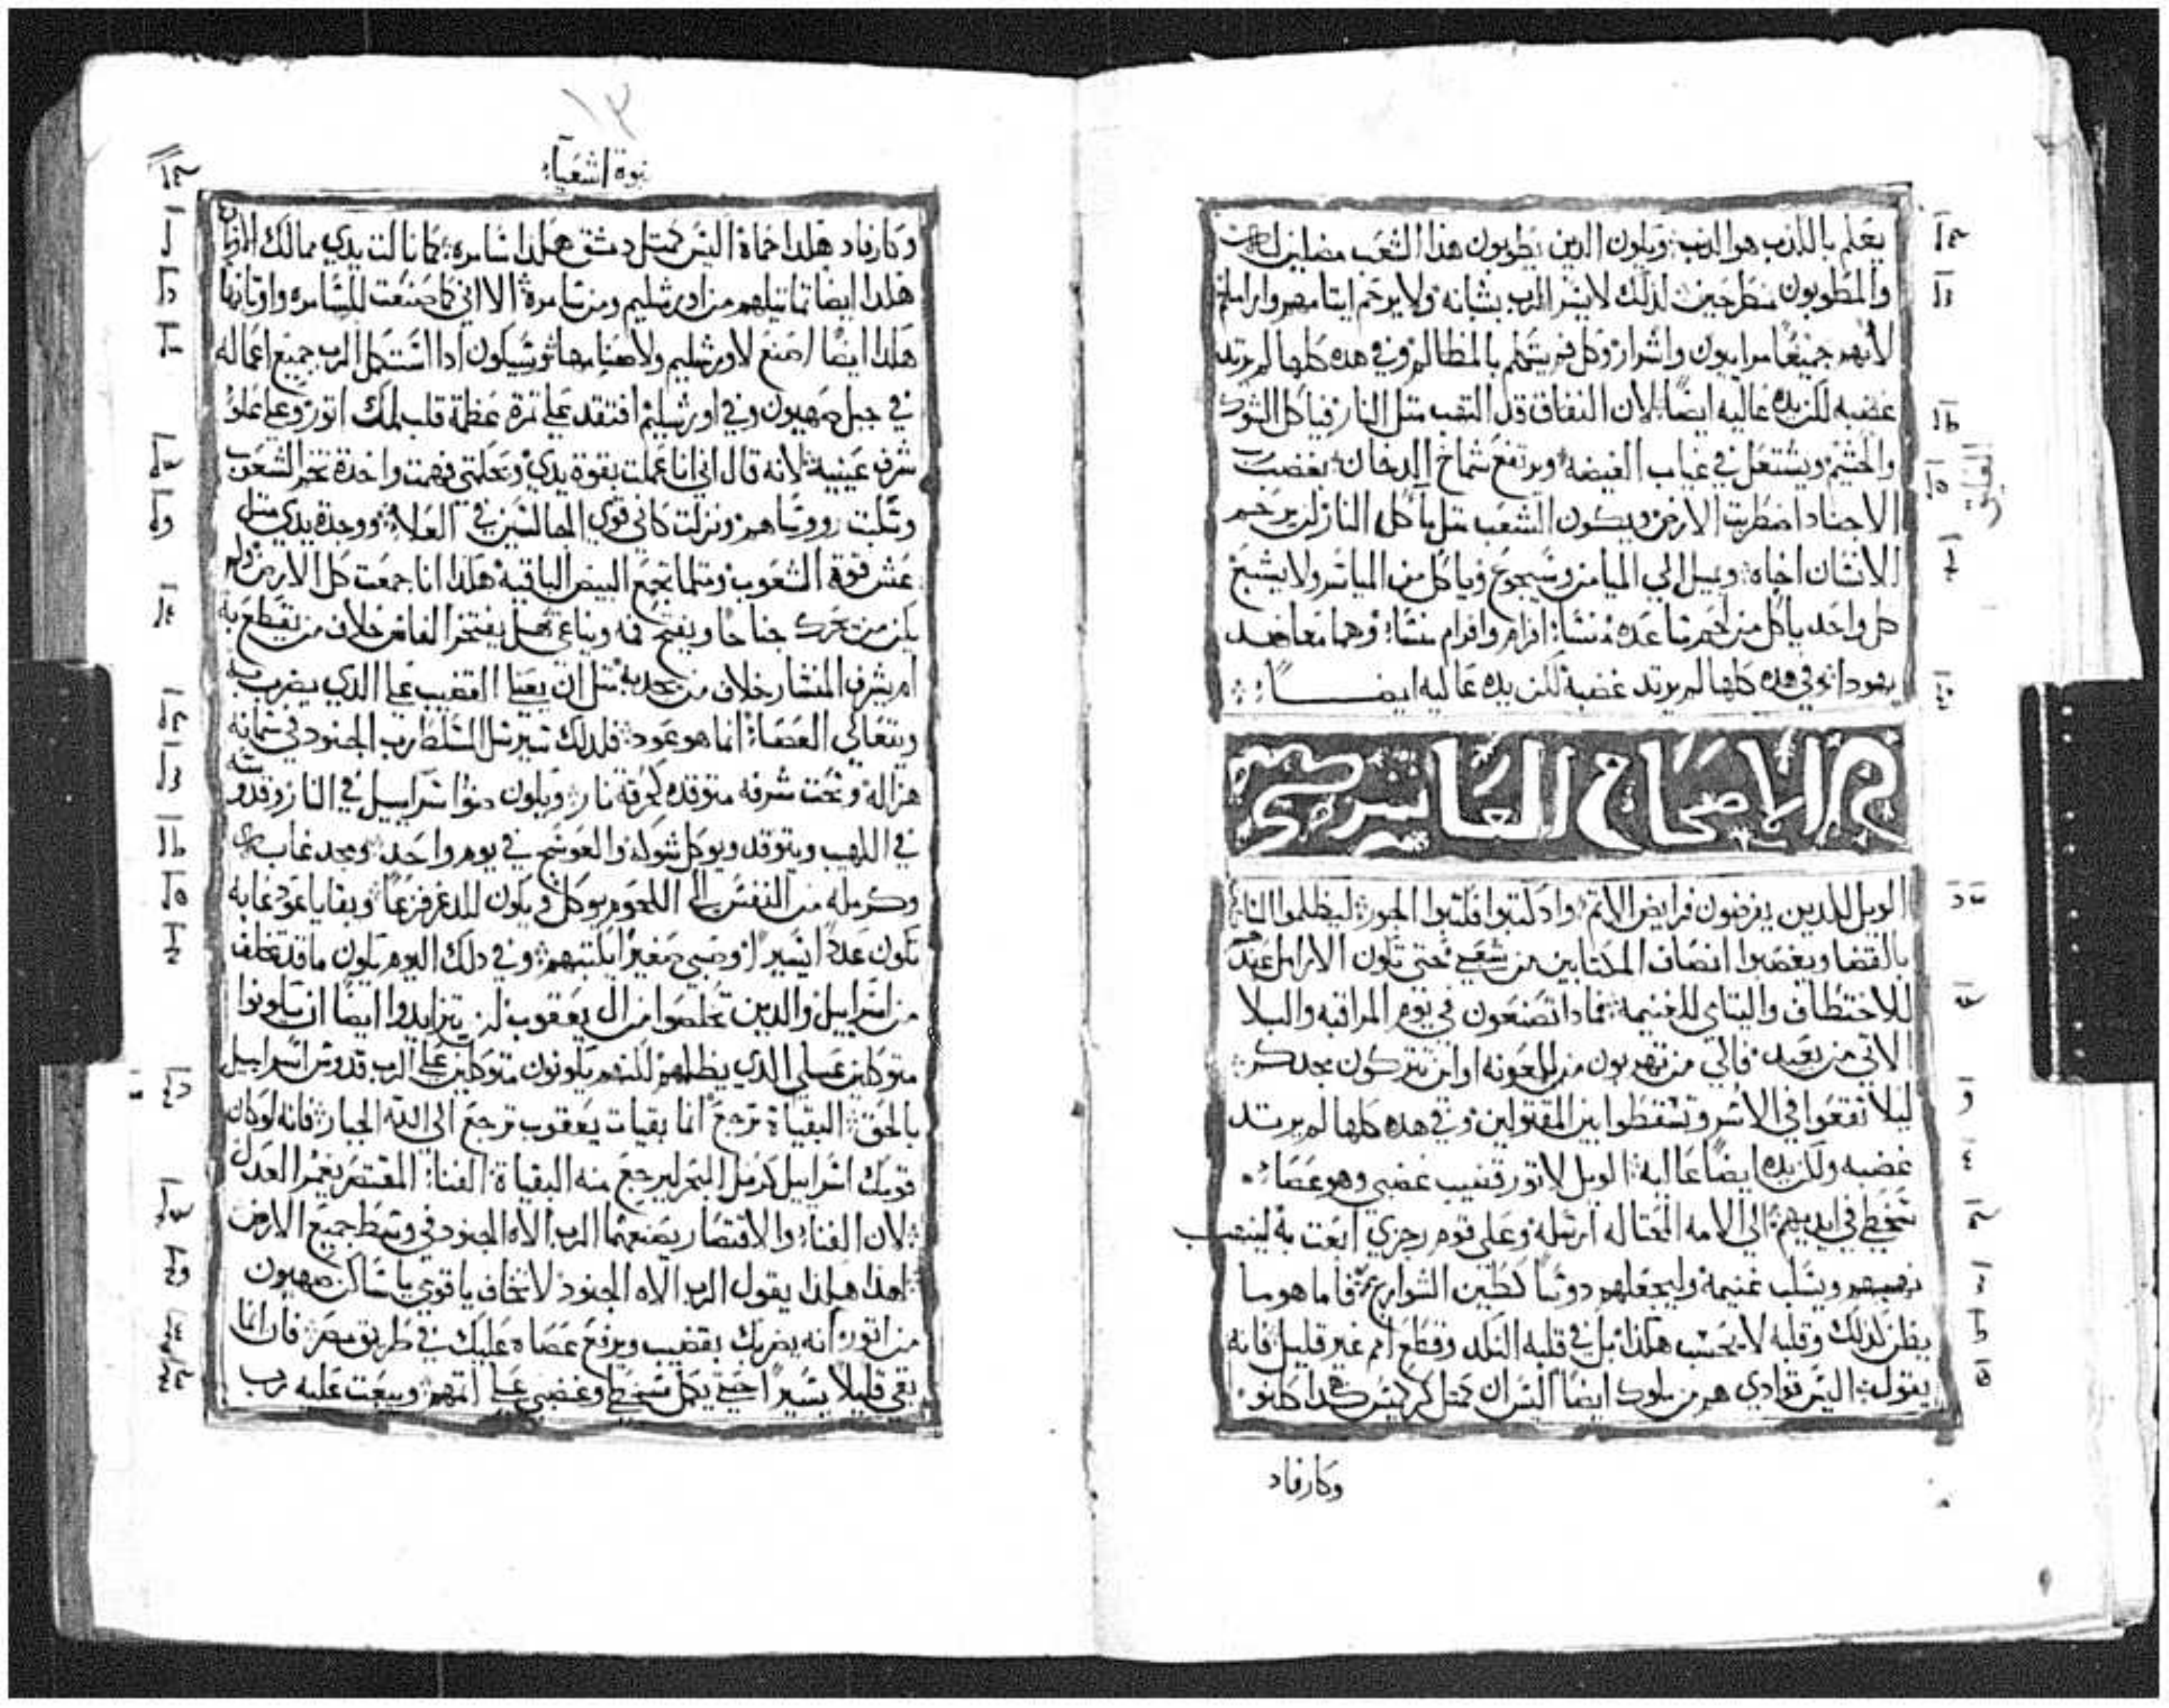 يعلم بالكذب هو الذنب ويكون الذين يطوبون هذا الشعب مضلين
والمطوبون مطرحين لذلك لا يسر الرب بشبانه ولا يرحم ايتامهم واراملهم
لانهم جميعًا مراييون واشرار وكل فم يتكلم بالمظالم وفي هذه كلها لم يرتد
غضبه لكن يده عاليه ايضًا لان النفاق قد التهب متل النار فياكل الشوك
والحشيم ويشتعل في غياب الغيضه ويرتفع شماخ الدخان بغضب رب
الاجناد اضطربت الارض ويكون الشعب متل ماكل النار لن يرحم
الانسان اخاه ويميل الي الميامن وسيجوع وياكل من المياسر ولا يشبع
كل واحد ياكل من لحم ساعده منشا افرام وافرام منشا وهما معا ضد
يهودا في هذه كلها لم يرتد غضبه لكن يده عاليه ايضًا
الاصحاح العاشر
الويل للذين يفرضون فرايض الاتم واد كتبوا فكتبوا الجور ليظلموا
بالقضا ويغصبوا انصاف المساكين من شعبي حتى تكون الارامل عندهم
للاختطاف واليتامي للغنيمه فمادا تصنعون في يوم المراقبه والبلا
الاتي من بعيد فالي من تهربون من المعونه او اين تتركون مجدكم
ليلا تقعوا في الاسر وتسقطوا بين المقتولين وفي هذه كلها لم يرتد
غضبه ولكن يده ايضًا عاليه الويل لاتور قضيب غضبي وهو عصا
سخطي في ايديهم الي الامه المحتاله ارسله وعلي قوم رجزي ابعت به لينهب
نهبهم ويسلب غنيمة وليجعلهم دوسًا كطين الشوارع فاما هو ما
يظن كذلك وقلبه لا يحسب هكذا بل في قلبه النكد وقطع امم غير قليل فانه
يقول اليس قوادي هم من ملوك ايضًا اليس ان كمتل كركميس هكذا كالنو
وكارفاد
نبوة اشعيآء
وكارفاد هكذا حماة اليس كمتل دمشق هكذا سامره كما نالت يدي ممالك الاوتان
هكذا ايضًا تماتيلهم من اورشليم ومن سامرة الا اني كما صنعت للسامره واوتانها
هكذا ايضًا اصنع لاورشليم ولاصنامها وسيكون ادا استكمل الرب جميع اعماله
في جبل صهيون وفي اورشليم افتقد علي ترة عظمة قلب ملك اتور وعلي علو
شرف عينيه لانه قال اني انا عملت بقوة يدي وبحكمتي فهمت واخدة تخم الشعوب
وتكلت رووساهم ونزلت كاني قوي الجالسين في العلا ووجدة يدي متل
عش قوة الشعوب ومتلما تجمع البيض الباقيه هكذا انا جمعت كل الارض ولم
يكن من تحرك جناحًا ويفتح فمه ويناغي هل يفتخر الفاس خلاف من يقطع به
ام يشرف المنشار خلاف من يجدبه متل ان يعيا القضيب علي الدي يضرب به
ويتعالي العصا انما هو عود فلدلك سيرسل السلط رب الجنود في سمانه
هزاله وتحت شرفه متوقده كحرقة نار ويكون ضوا اسراييل في النار وقدوسه
في اللهيب ويتوقد ويوكل شوكه والعوسج في يوم واحد ومجد غابه
وكرمله من النفس الي اللحم يوكل ويكون للدغر فزعًا وبقايا عود غابه
تكون عددًا ايسيرًا وصبي صغيرًا يكتبهم وفي دلك اليوم يكون ما قد تخلف
من اسراييل والدين تخلصوا من ال يعقوب لن يتزايدوا ايضًا ان يكونوا
متوكلين علي الذي يظلمهم لكنهم يكونون متوكلين علي الرب قدوس اسراييل
بالحق البقياة ترجع انما بقيات يعقوب ترجع الي الله الجبار فانه لو كان
قومك اسراييل كرمل البحر ليرجع منه البقياة الفنا المقتصر يغمر العدل
لان الفنا والاقتصار يصنعهما الرب الاه الجنود في وسط جميع الارض
لهذا هكذا يقول الرب الاه الجنود لا تخاف يا قومي يا ساكن صهيون
من اتور انه يضربك بقضيب ويرفع عصاه عليك في طريق مصر فان انما
بقي قليلًا يسيرًا حتي يكمل سخطي وغضبي علي اتمهم ويبعت عليه رب